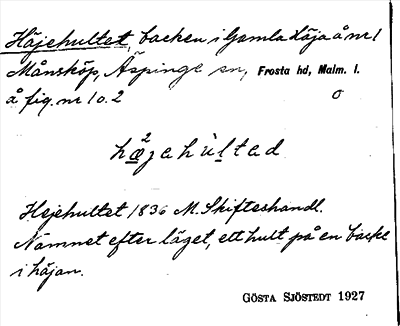 Höjehultet, backen i Gamla Höja å nr 1
Månsköp, Äspinge sn, Frosta hd, Malm. l.
å fig. nr 1 o. 2
hæ²jahùltad
Höjehultet 1836 M. Skifteshandl.
Nämnet efter läget, ett hult på en backe
i höjan.
GÖSTA SJÖSTEDT 1927